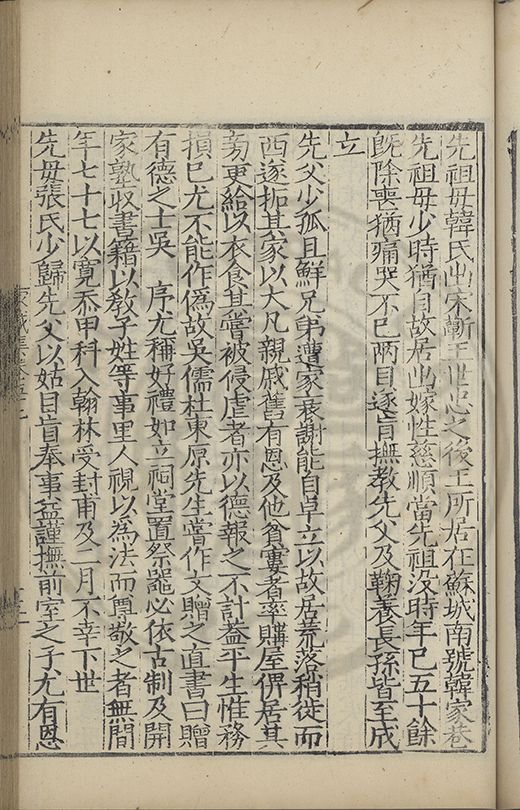 先祖母韓氏出宋蘄王世忠之後王所居在蘇城南號韓家巷
先祖母少時猶自故居出嫁性慈順當先祖沒時年已五十餘
旣除喪猶痛哭不已兩目遂盲撫教先父及鞠養長孫皆至成
立
先父少孤且鮮兄弟遭家衰謝能自卓立以故居荒落稍徙而
西遂拓其家以大凡親戚舊有恩及他貧寠者率購屋俾居其
旁更給以衣食其嘗被侵虐者亦以德報之不計蓋平生惟務
損已尤不能作偽故吳儒杜東原先生嘗作文贈之直書曰贈
有德之士吳 序尤稱好禮如立祠堂置祭器必依古制及開
家塾收書籍以教子姓等事里人視以為法而尊敬之者無間
年七十七以寬忝甲科入翰林受封甫及二月不幸下世
先母張氏少歸先父以姑目盲奉事益謹撫前室之子尤有恩